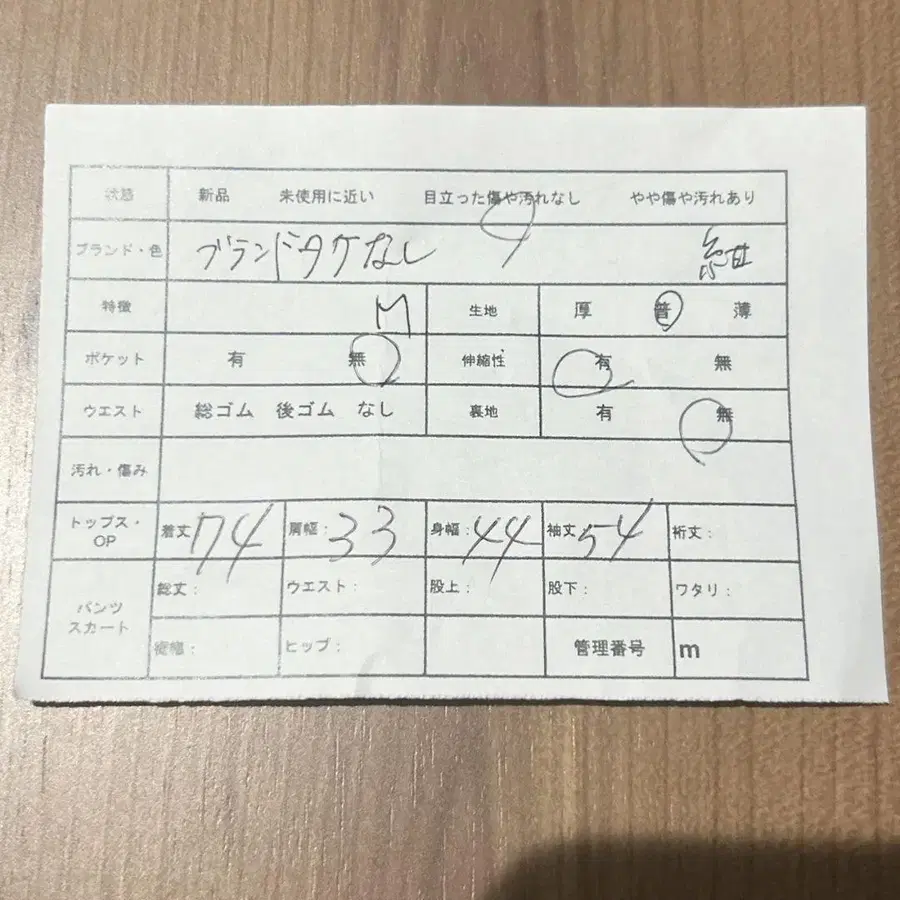 状態 新品 未使用に近い 目立った傷や汚れなし やや傷や汚れあり
ブランド・色 ブランドタグなし 紺
特徴 M 生地 厚 普 薄
ポケット 有 無 伸縮性 有 無
ウエスト 総ゴム 後ゴム なし 裏地 有 無
汚れ・傷み
トップス・OP 着丈 74 肩幅: 33 身幅: 44 袖丈 54 裄丈:
パンツ スカート 総丈: ウエスト: 股上: 股下: ワタリ:
裾幅: ヒップ: 管理番号 m